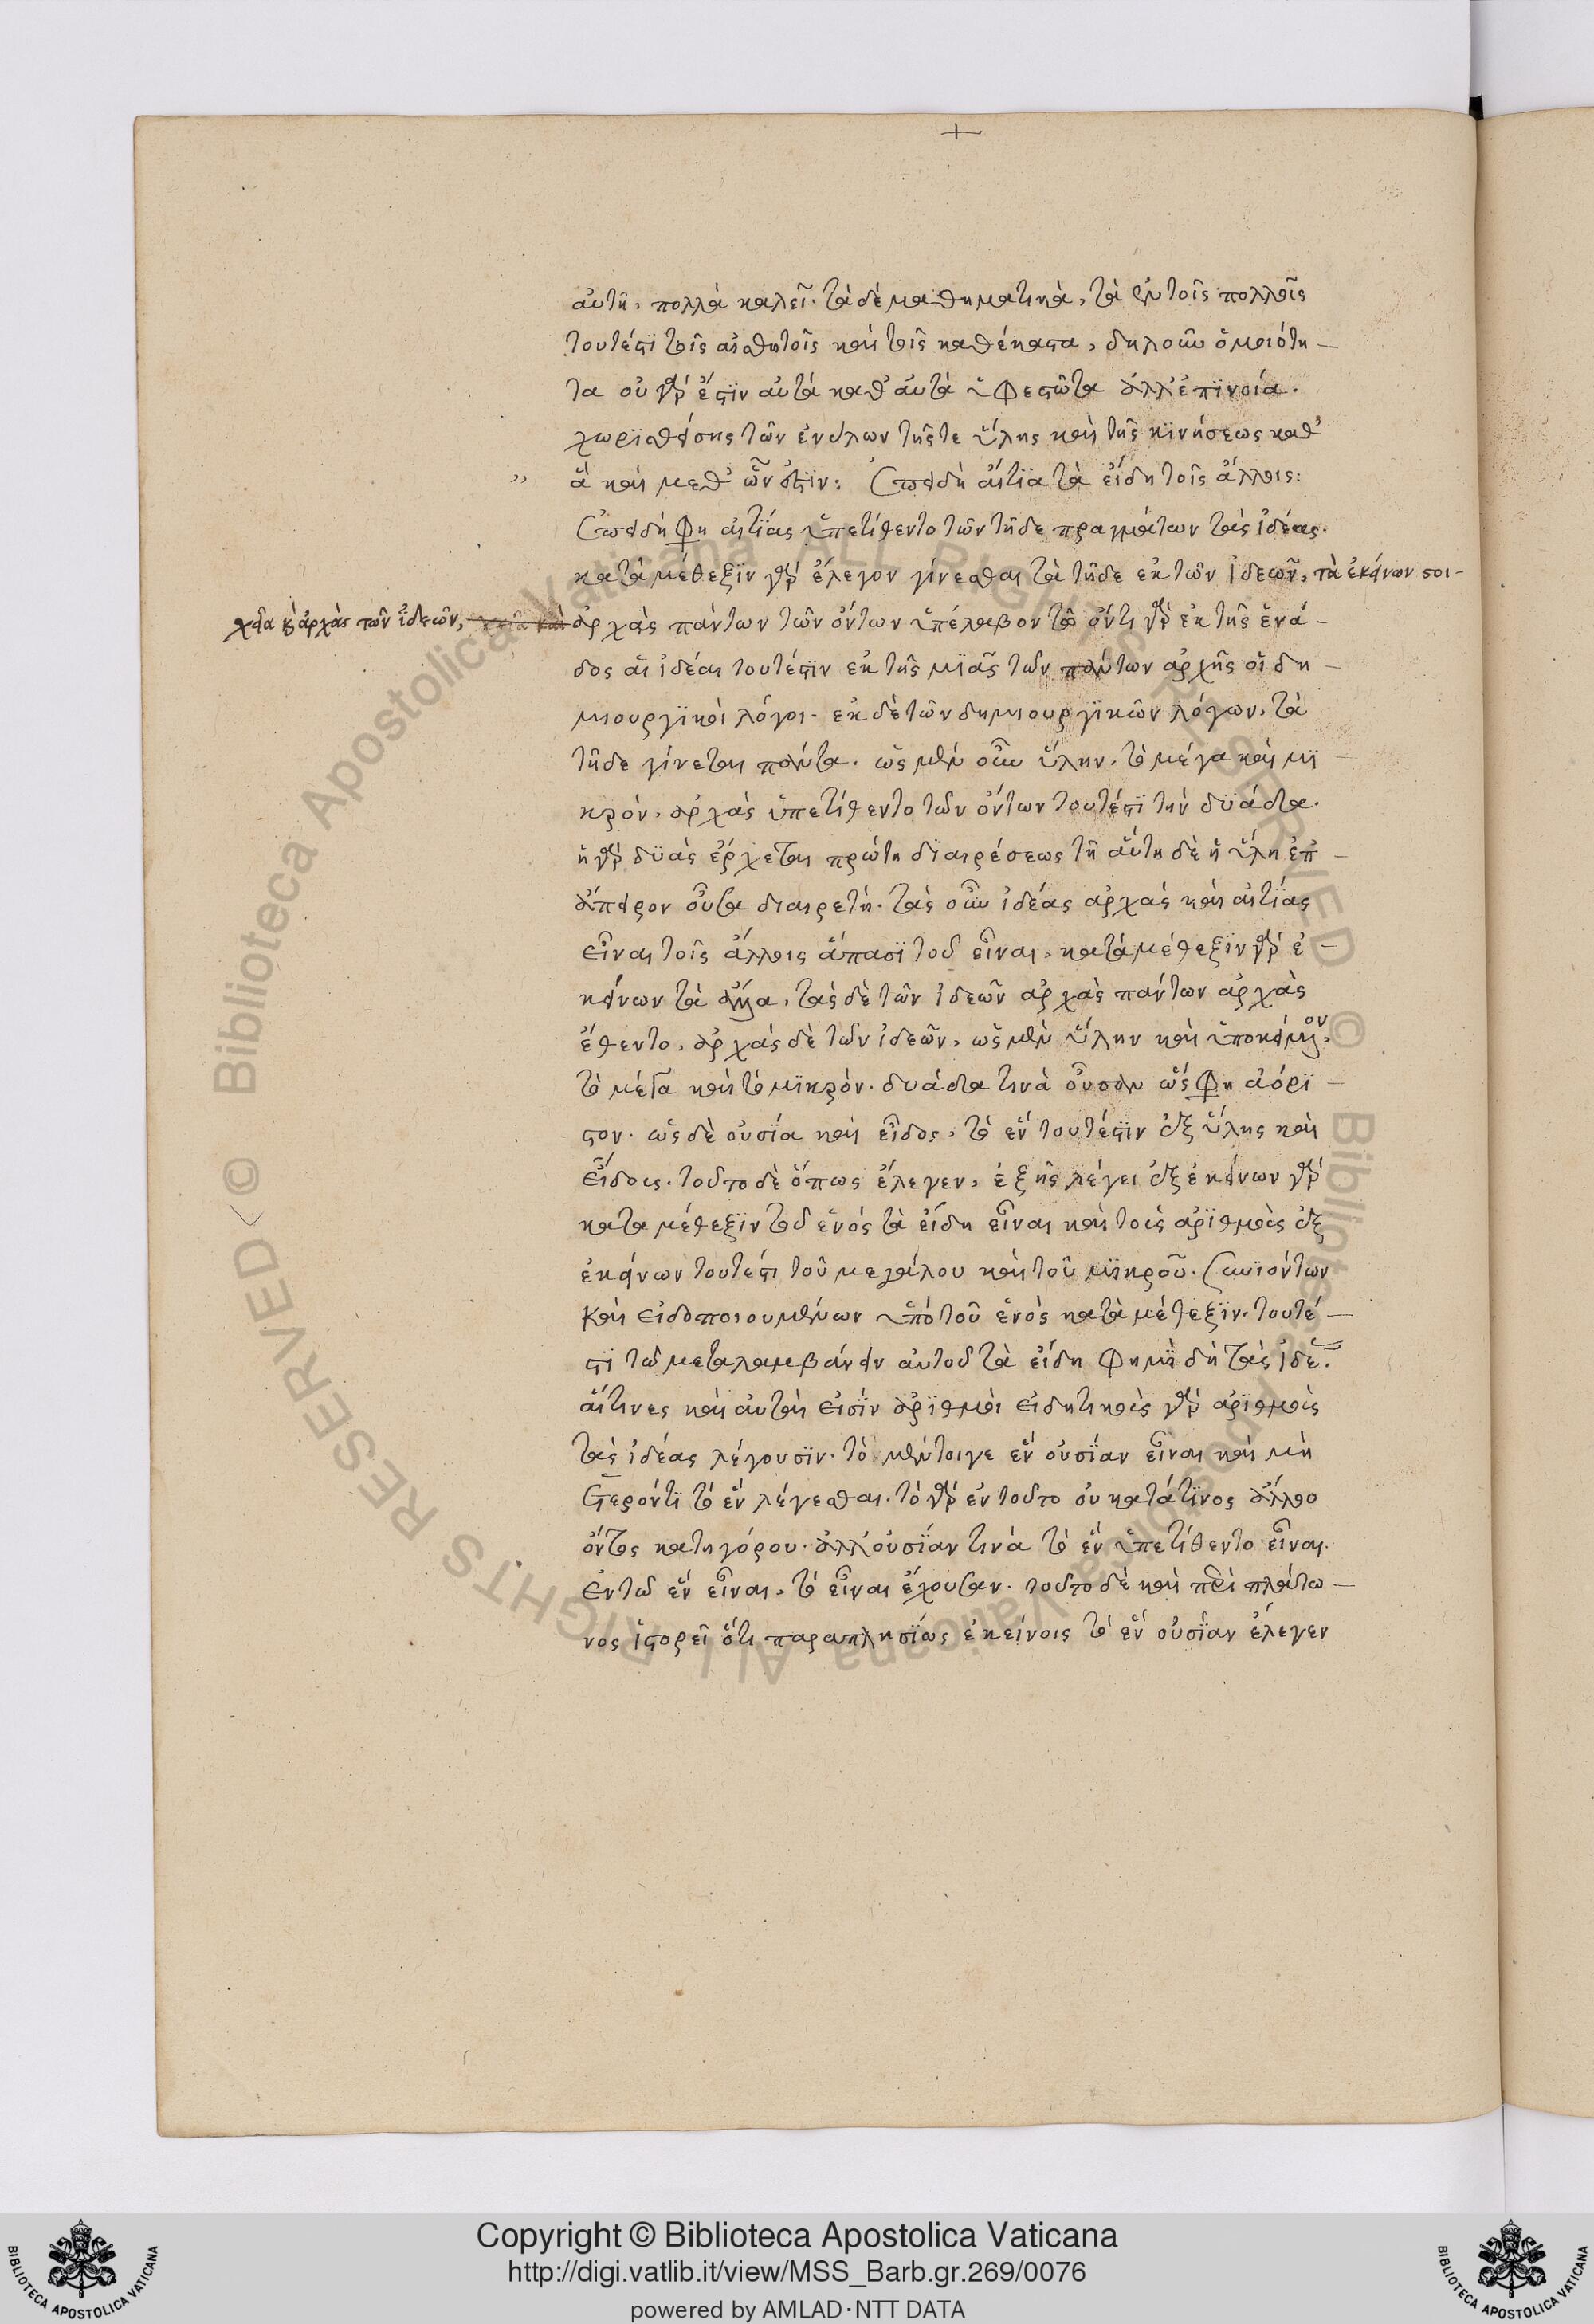 αὐτῆ, πολλὰ καλεῖ· τὰ δὲ μαθηματικὰ, τὰ ἐν τοῖς πολλοῖς
τουτέστι τοῖς αἰσθητοῖς καὶ τοῖς καθέκαστα, δηλοῦν ὁμοιότη-
τα οὐ γάρ ἐστιν αὐτὰ καθ' αὑτὰ ὑφεστῶτα ἀλλ' ἐπινοία.
χωρισθείσης τῶν ἐνύλων τῆς τε ὕλης καὶ τῆς κινήσεως καθ'
,, ἃ καὶ μεθ' ὧν ἐστιν: Ἐπειδὴ αἴτια τὰ εἴδη τοῖς ἄλλοις:
Ἐπειδή φη αἰτίας ὑπετίθεντο τῶν τῆδε πραγμάτων τὰς ἰδέας.
κατὰ μέθεξιν γάρ ἔλεγον γίνεσθαι τὰ τῆδε ἐκ τῶν ἰδεῶν, τὰ ἐκείνων στοι-
χεῖα κ ἀρχὰς τῶν ἰδεῶν, ἀρχὰς πάντων τῶν ὄντων ὑπέλαβον τῷ ὄντι γάρ ἐκ τῆς ἑνά-
δος αἱ ἰδέαι τουτέστιν ἐκ τῆς μιᾶς τῶν πάντων ἀρχῆς οἱ δη-
μιουργικοὶ λόγοι· ἐκ δὲ τῶν δημιουργικῶν λόγων, τὰ
τῆδε γίνεται πάντα. ὡς μὲν οὖν ὕλην, τὸ μέγα καὶ μι-
κρόν, ἀρχὰς ὑπετίθεντο τῶν ὄντων τουτέστι τὴν δυάδα.
ἡ γάρ δυὰς ἔρχεται πρώτη διαιρέσεως τῆ αὕτη δὲ ἡ ὕλη ἐπ'-
ἄπειρον οὖσα διαιρετή. τὰς οὖν ἰδέας ἀρχὰς καὶ αἰτίας
εἶναι τοῖς ἄλλοις ἅπασι τοῦ εἶναι, κατὰ μέθεξιν γάρ ἐ-
κείνων τὰ ἄλλα, τὰς δὲ τῶν ἰδεῶν ἀρχὰς πάντων ἀρχὰς
ἔθεντο, ἀρχὰς δὲ τῶν ἰδεῶν, ὡς μὲν ὕλην καὶ ὑποκείμενον,
τὸ μέγα καὶ τὸ μικρόν· δυάδα τινὰ οὖσαν ὥς φη ἀόρι-
στον· ὡς δὲ οὐσία καὶ εἶδος, τὸ ἓν τουτέστιν ἐξ ὕλης καὶ
εἴδους. τοῦτο δὲ ὅπως ἔλεγεν, ἑξῆς λέγει ἐξ ἐκείνων γάρ
κατα μέθεξιν τοῦ ἑνός τὰ εἴδη εἶναι καὶ τοὺς ἀριθμοὺς ἐξ
ἐκείνων τουτέστι τοῦ μεγάλου καὶ τοῦ μικροῦ. συνιόντων
καὶ εἰδοποιουμένων ὑπὸ τοῦ ἑνὸς κατὰ μέθεξιν. τουτέ-
στι τῶ μεταλαμβάνειν αὐτοῦ τὰ εἴδη φημὶ δὴ τὰς ἰδέ.
αἵτινες καὶ αὐταὶ εἰσὶν ἀριθμοὶ εἰδητικοὺς γάρ ἀριθμοὺς
τὰς ἰδέας λέγουσιν. τὸ μέντοιγε ἓν οὐσίαν εἶναι καὶ μὴ
ἕτερόντι τὸ ἓν λέγεσθαι. τὸ γάρ ἐν τοῦτο οὐ κατά τινος ἄλλου
ὄντος κατηγόρου. ἀλλ' οὐσίαν τινὰ τὸ ἓν ὑπετίθεντο εἶναι.
ἐν τῶ ἓν εἶναι, τὸ εἶναι ἔχουσαν. τοῦτο δὲ καὶ περὶ πλάτω-
νος ἱστορεῖ ὅτι παραπλησίως ἐκείνοις τὸ ἓν οὐσίαν ἔλεγεν
Copyright © Biblioteca Apostolica Vaticana
http://digi.vatlib.it/view/MSS_Barb.gr.269/0076
powered by AMLAD·NTT DATA